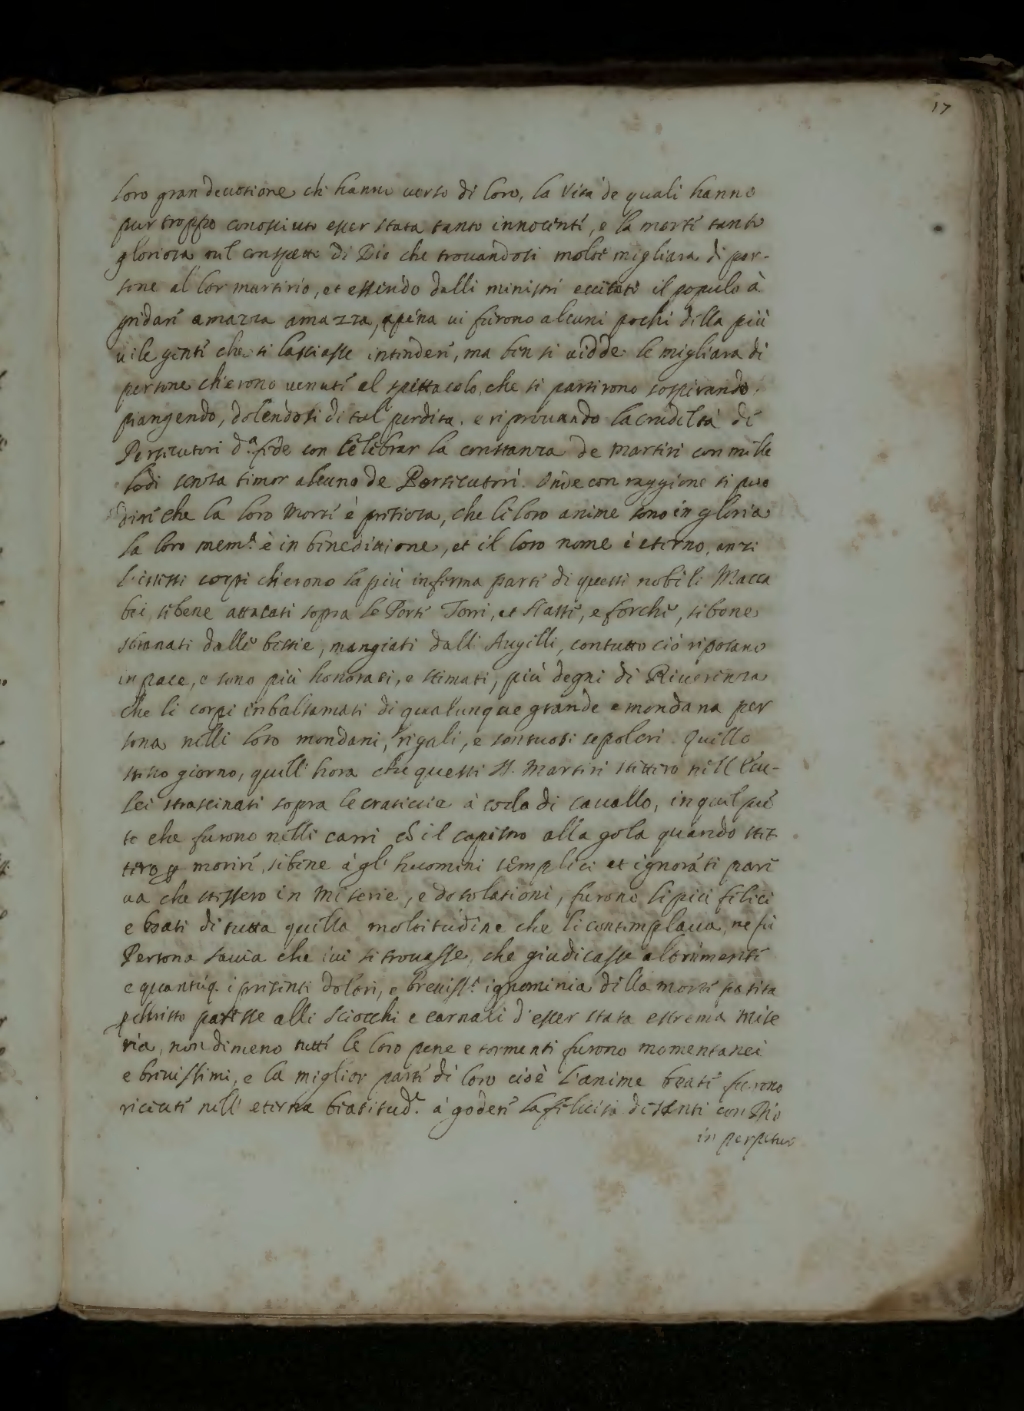 17
loro gran deuotione ch' hanno uerso di loro, la Vita de quali hanno
pur troppo conosciuto esser stata tanto innocente, e la morte tanto
gloriosa nel conspetto di Dio che trouandosi molte migliara di per-
sone al lor martirio, et essendo dalli ministri eccitati il populo à
gridare amazza amazza, apena ui furono alcuni pochi della più
uile gente che si lasciasse intendere, ma ben si uidde le migliara di
persone ch'erono uenuti al spettacolo, che si partirono sospirando,
piangendo, dolendosi di tal perdita, e riprouando la crudeltà di
Persecutori d.ª fede con celebrar la constanza de martiri con mille
lodi senza timor alcuno de Persecutori. Onde con raggione si puo
dire che la loro Morte è pretiosa, che le loro anime sono in gloria
la loro mem.ª è in benedittione, et il loro nome è eterno, anzi
l'istessi corpi ch'erono la più inferma parte di questi nobili Macca
bei, sibene attacati sopra le Porte Torri, et Haste, e forche, sibene
sbranati dalle bestie, mangiati dall Augelli, contutto ciò riposano
in pace, e sono più honorati, e stimati, più degni di Riuerenza
che li corpi inbalsamati di qualunque grande e mondana per
sona nelli loro mondani, regali, e sontuosi sepolcri. Quello
stesso giorno, quell' hora che questi SS. Martiri stettero nell Ecu-
lei strascinati sopra le craticcie à coda di cauallo, in quel pun
to che furono nelli carri cõ il capestro alla gola quando stet
tero p morire, sibene à gl' huomini semplici et ignorãti pare
ua che stessero in Miserie, e desolationi, furono li più felici
e beati di tutta quella moltitudine che li contemplaua, ne fu
Persona sauia che iui si trouasse, che giudicasse altrimenti
e quantũq. i presenti dolori, e breuiss.ª ignominia della morte patita
p Christo paresse alli Sciocchi e carnali d'esser stata estrema mise
ria, nondimeno tutte le loro pene e tormenti furono momentanei
e breuissimi, e la miglior parte di loro cioè l'anime beate furono
riceuti nell' eterna beatitud.ᵉ à godere la felicità de Santi con Dio
in perpetuo